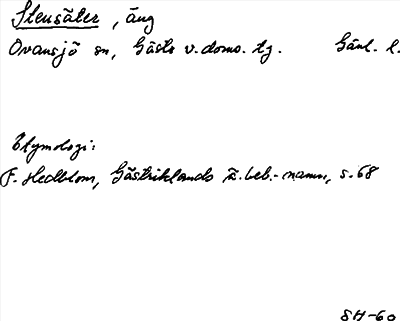 Stensäter, äng
Ovansjö sn, Gästr v. doms. tg. Gävl. l.
Etymologi:
F. Hedblom, Gästriklands ä. beb.-namn, s. 68
SH-60